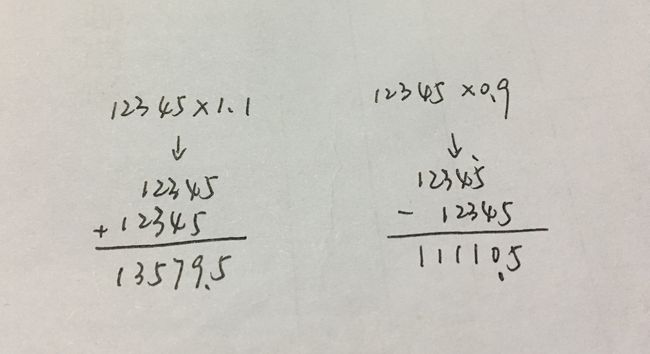 12345×1.1
↓
12345
+12345
13579.5
12345×0.9
↓
12345
- 12345
11110.5